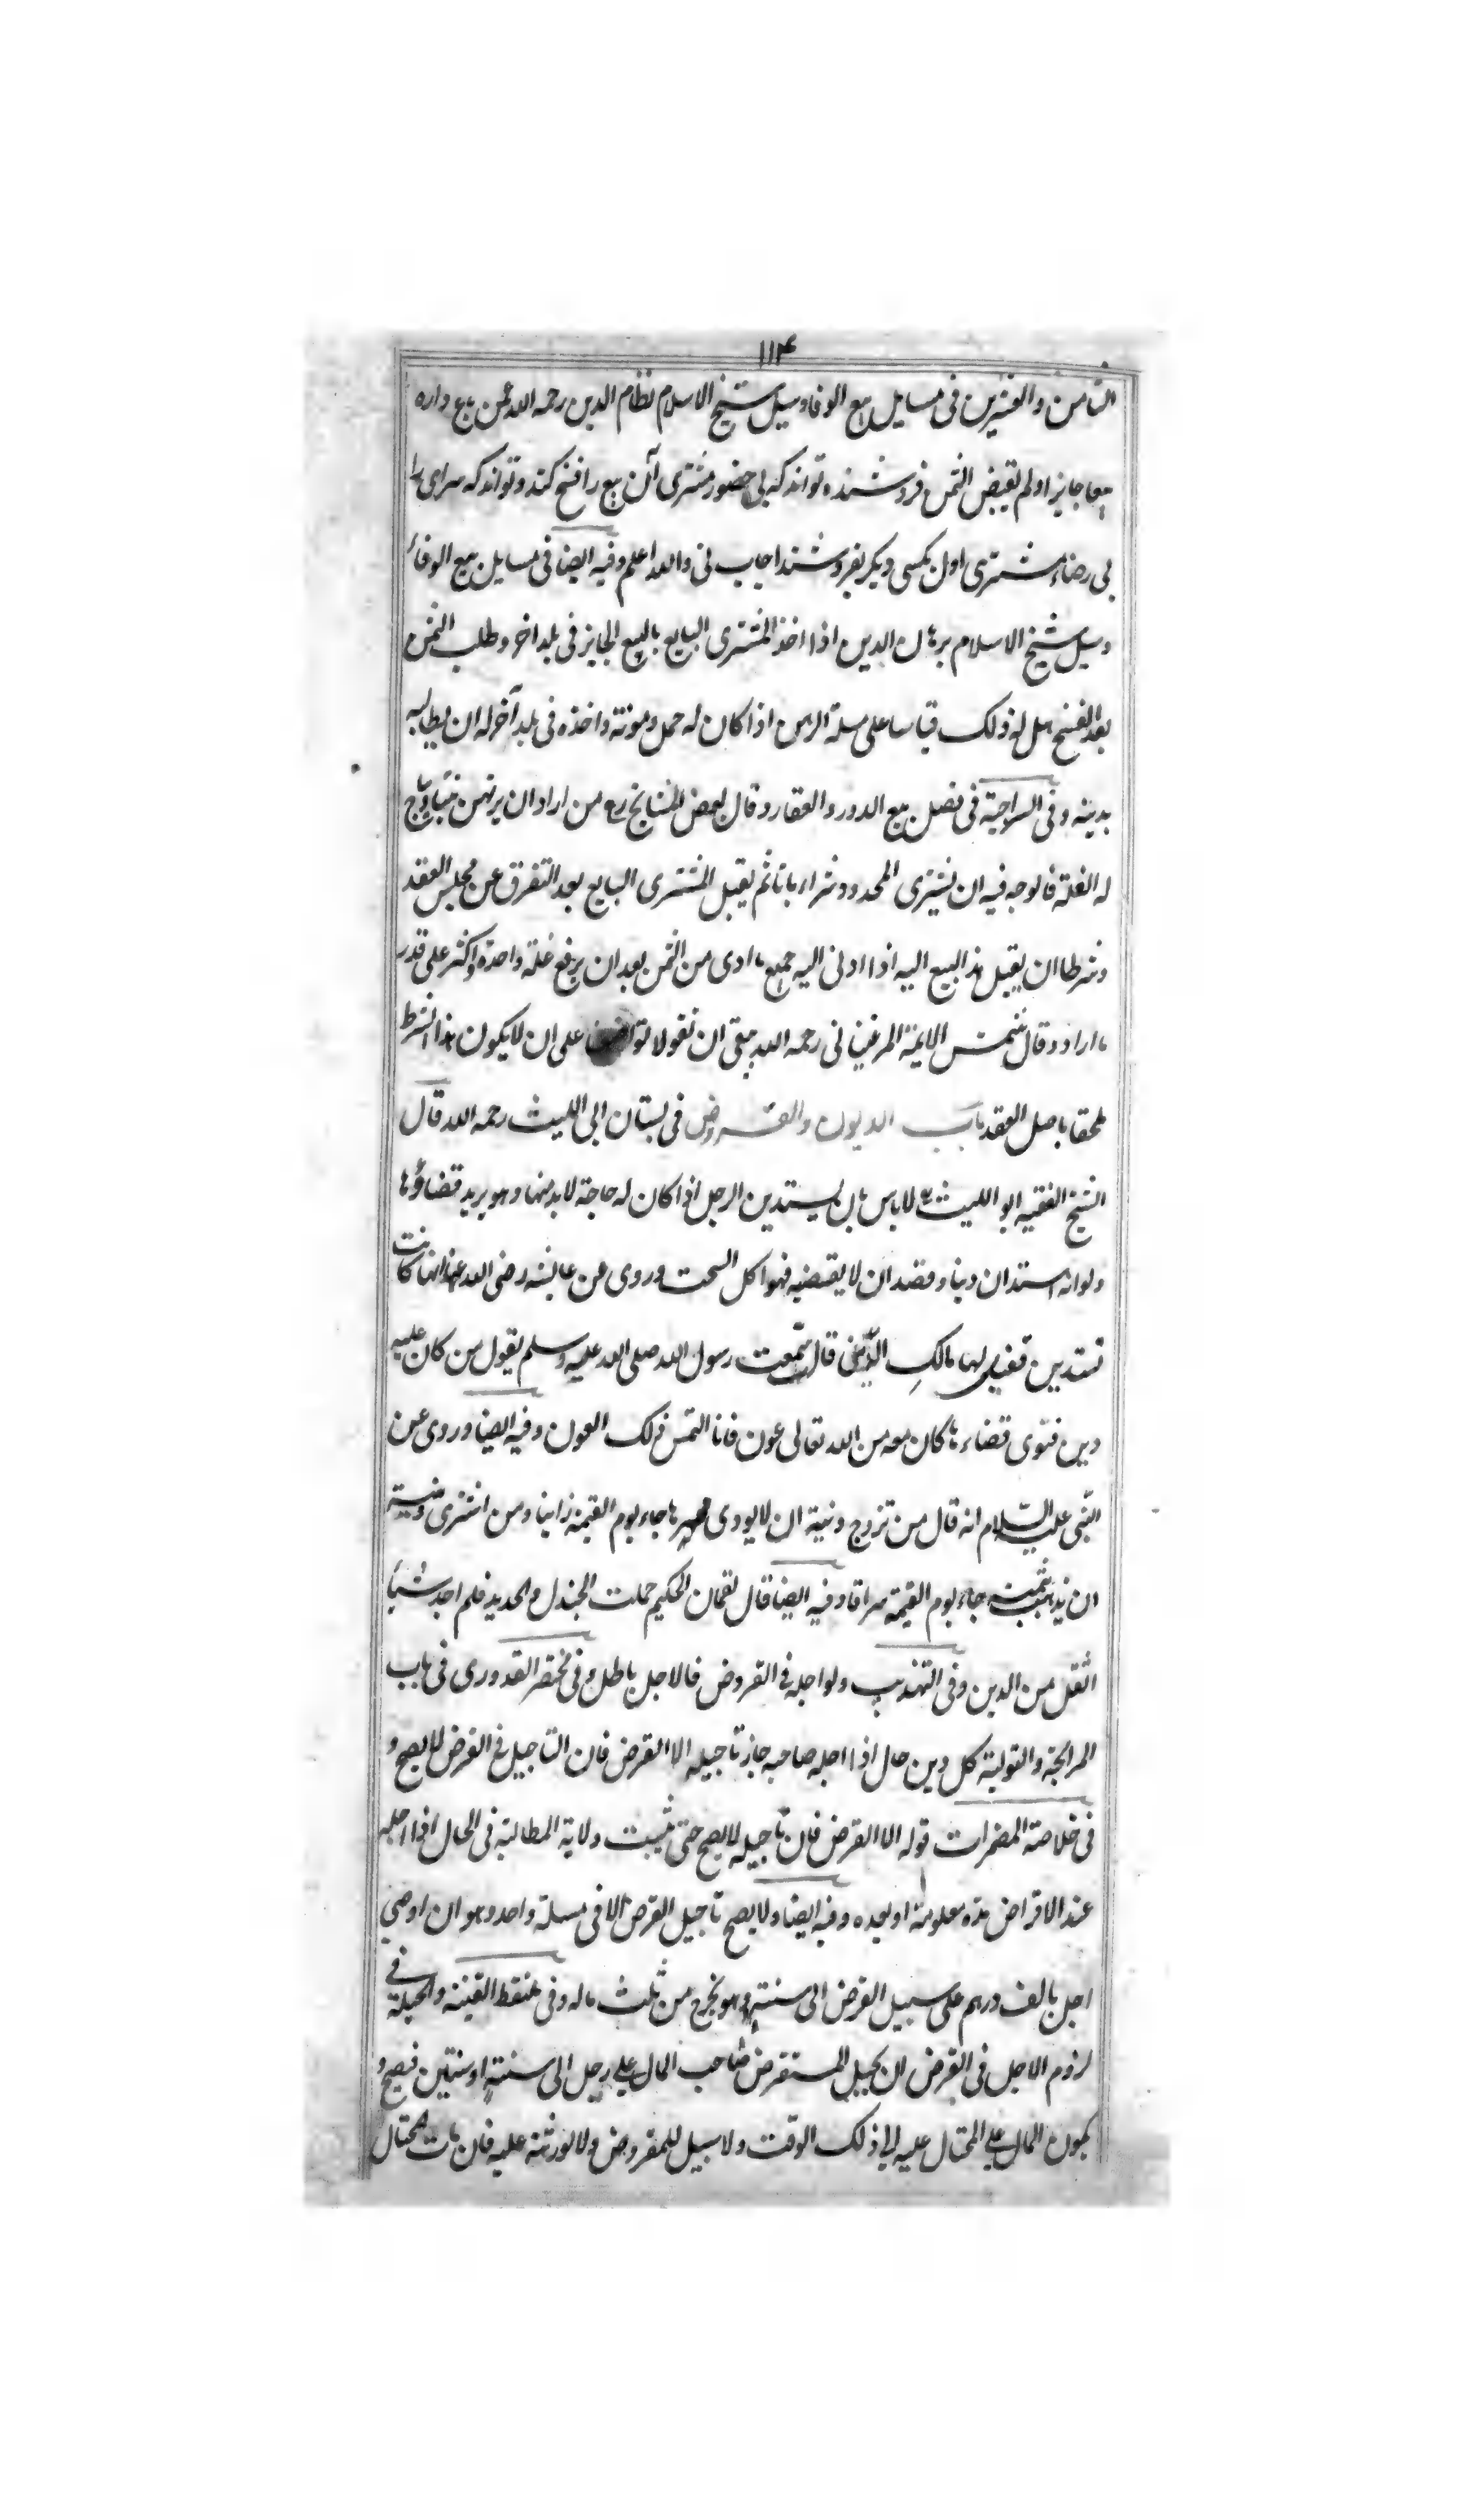 ۱۱۴
الثامن والعشرين فى مسايل بيع الوفا وسيل شيخ الاسلام نظام الدين رحمه الله عمن باع داره
بيعا جايزا ولم يقبض الثمن فروشنده تواند كه بى حضور مشترى آن بيع را فسخ كند و تواند كه سراى را
بى رضاء مشترى اول بكسى ديكر بفروشند اجاب نى والله اعلم وفيه ايضا فى مسايل بيع الوفاء
وسيل شيخ الاسلام برهان الدين اذا اخذ المشترى البايع بالبيع الجايز فى بلد اخر وطلب الثمن
بعد الفسخ هل له ذلك قياسا على مسلة الرهن اذا كان له حمل ومونة واخذه فى بلد آخر له ان يطالبه
بدينه وفى السراجية فى فصل بيع الدور والعقار وقال بعض المشايخ رح من اراد ان يرتهن شيا ويباح
له الغلة فالوجه فيه ان يشترى المحدود شراء باتا ثم يقبل المشترى البايع بعد التفرق عن مجلس العقد
وشرطا ان يقبل هذا البيع اليه اذا ادى اليه جميع ما ادى من الثمن بعد ان يرفع غلة واحدة واكثر على قدر
ما اراد وقال شمس الايمة المرغينانى رحمه الله ينبغى ان تقولا تواضعنا على ان لا يكون هذا الشرط
ملحقا باصل العقد باب الديون والقروض فى بستان ابى الليث رحمه الله قال
الشيخ الفقيه ابو الليث رح لا باس بان يستدين الرجل اذا كان له حاجة لا بد منها وهو يريد قضاؤها
ولو انه استدان دينا وقصد ان لا يقضيه فهو اكل السحت وروى عن عايشه رضى الله عنها انها كانت
تستدين فقيل لها مالكِ الدّين قالت سمعت رسول الله صلى الله عليه وسلم يقول من كان عليه
دين فنوى قضاءها كان معه من الله تعالى عون فانا التمس ذلك العون وفيه ايضا وروى عن
النّبى عليه السّلام انه قال من تزوج ونية ان لا يودى مهرها جاء يوم القيمة زانيا ومن اشترى ونيته
ان يذهب بثمنه جاء يوم القيمة سراقا وفيه ايضا قال لقمان الحكيم حملت الجندل والحديد فلم اجد شيئا
اثقل من الدين وفى التهذيب ولو اجله فى القروض فالاجل باطل وفى مختصر القدورى فى باب
المرابحة والتولية كل دين حال اذا اجله صاحبه جاز تاجيله الا القرض فان التاجيل فى القرض لا يصح و
فى خلاصة المضمرات قوله الا القرض فان تاجيله لا يصح حتى يثبت ولاية المطالبة فى الحال اذا اجله
عند الاقراض مدة معلومة او بعده وفيه ايضا ولا يصح تاجيل القرض الا فى مسلة واحد وهو ان اوصى
اجل بالف درهم على سبيل القرض الى سنته وهو يخرج من ثلث ماله وفى ملتقط القينة والحيلة فى
لزوم الاجل فى القرض ان يحيل المستقرض صاحب المال على رجل الى سنة او سنتين فيصح و
يكون المال على المحتال عليه الى ذلك الوقت ولا سبيل للمقروض ولا لورثته عليه فان مات المحتال